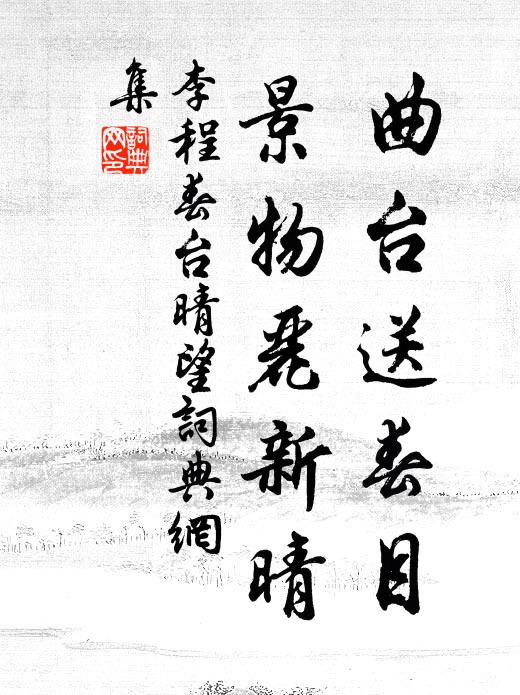 曲台送春目
景物麗新晴
李程春台晴望詞典網
集
詞典网印